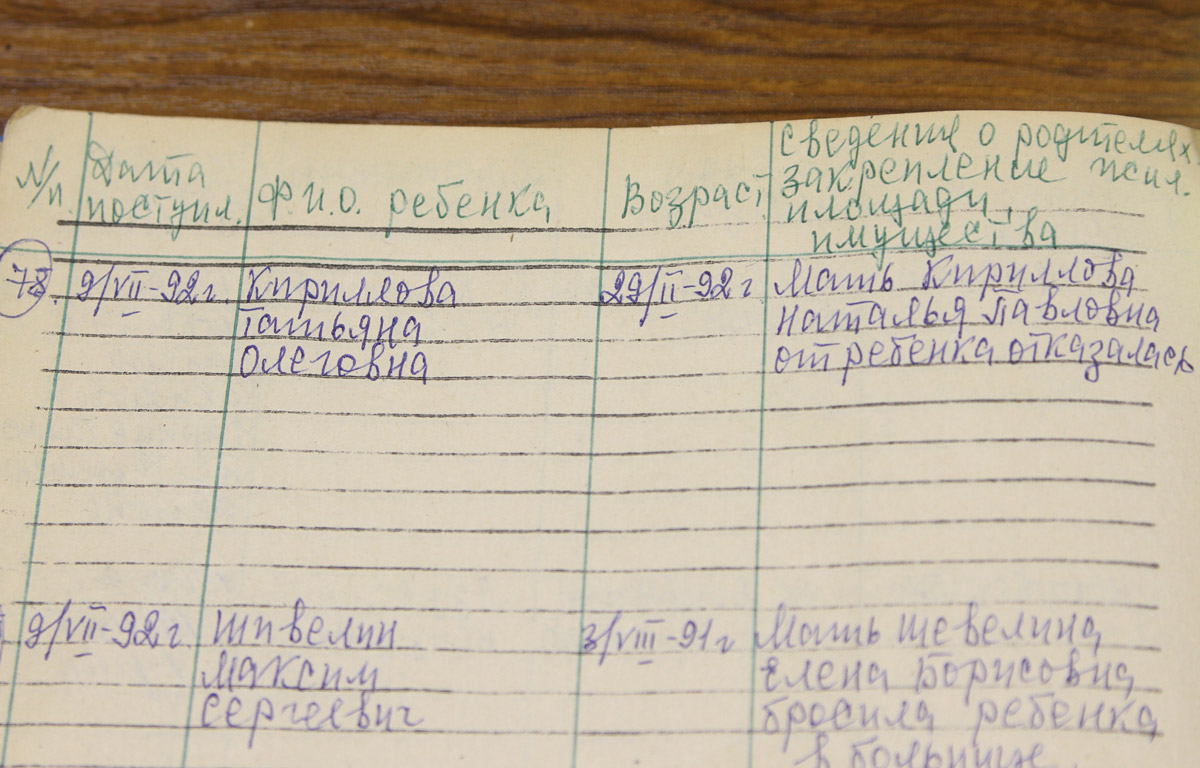 N/п.
Дата
поступл.
Ф.И.О. ребенка
Возраст
сведения о родителях
закрепление жил.
площади,
имущества
78
9/VII-92 г.
Кириллова
Татьяна
Олеговна
29/II-92 г
Мать Кириллова
Наталья Павловна
от ребенка отказалась
9/VII-92 г
Шивелин
Максим
Сергеевич
3/VIII-91 г
Мать Шевелина
Елена Борисовна
бросила ребенка
в больнице